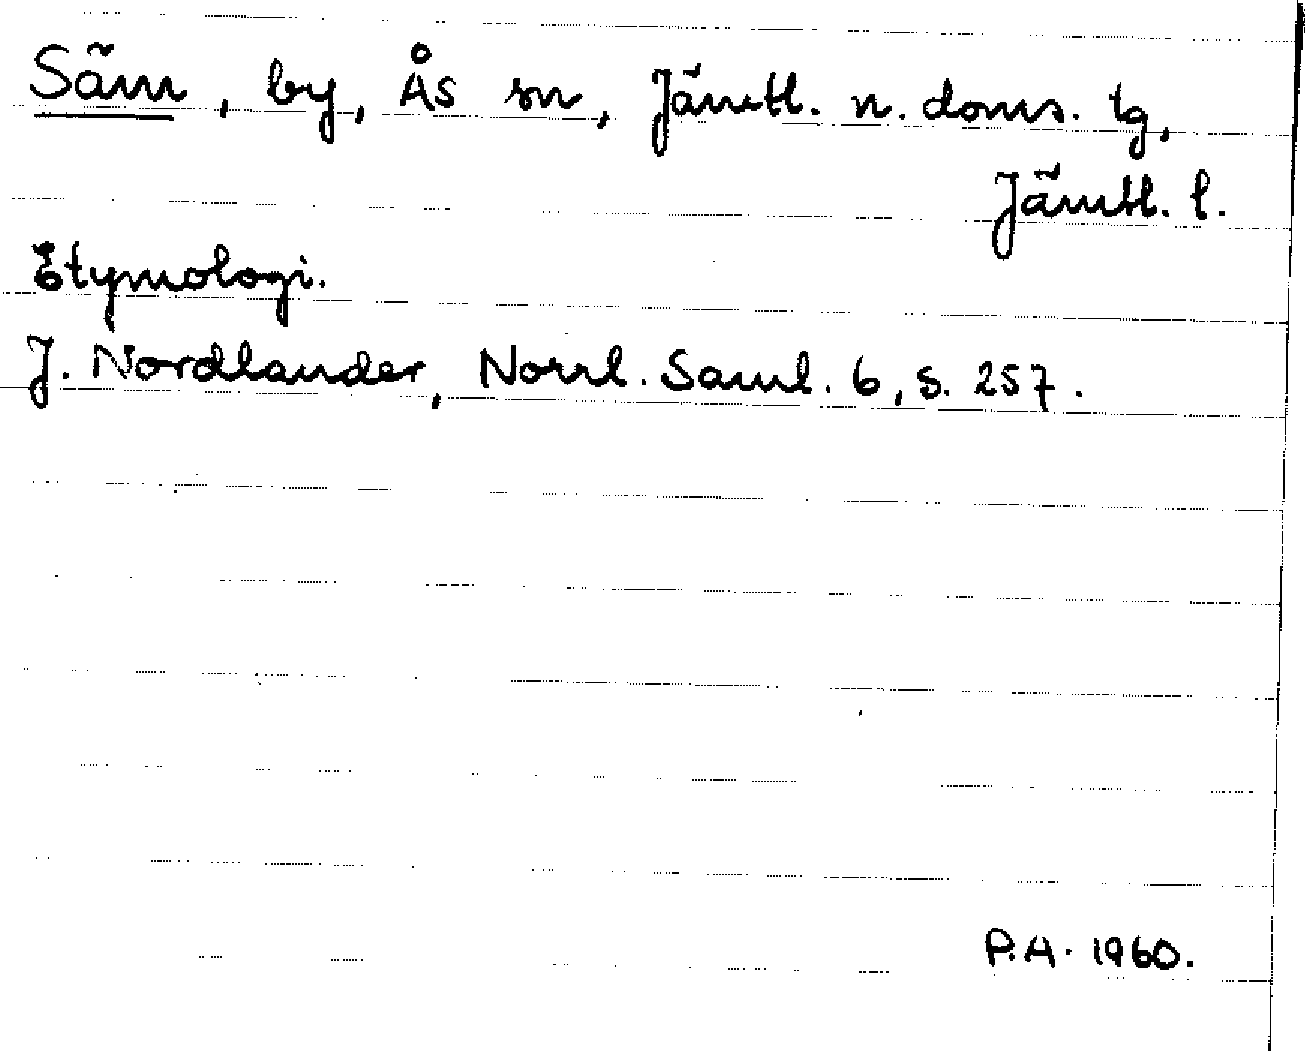 Säm, by, Ås sn, Jämtl. n. doms. tg,
Jämtl. l.
Etymologi.
J. Nordlander, Norrl. Saml. 6, s. 257.
P.A. 1960.